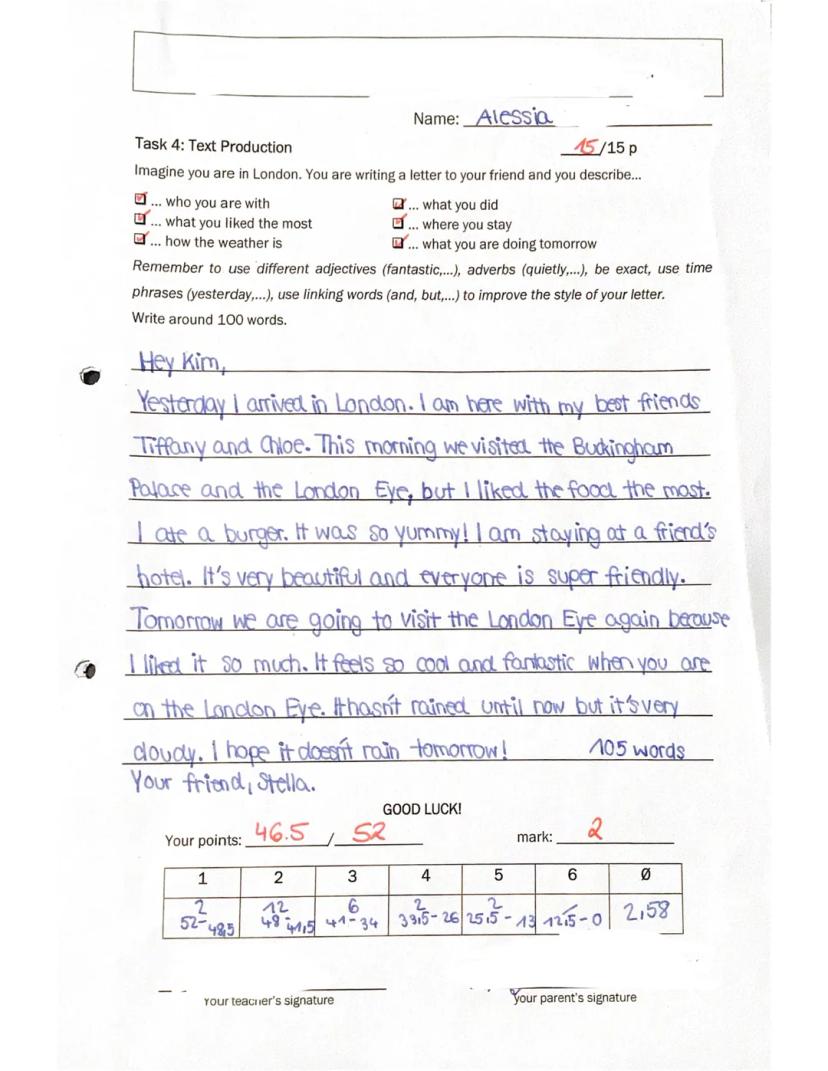 Name: Alessia
Task 4: Text Production 15/15 p
Imagine you are in London. You are writing a letter to your friend and you describe...
... who you are with ... what you did
... what you liked the most ... where you stay
... how the weather is ... what you are doing tomorrow
Remember to use different adjectives (fantastic,...), adverbs (quietly,...), be exact, use time
phrases (yesterday,...), use linking words (and, but,...) to improve the style of your letter.
Write around 100 words.
Hey Kim,
Yesterday I arrived in London. I am here with my best friends
Tiffany and Chloe. This morning we visited the Buckingham
Palace and the London Eye, but I liked the food the most.
I ate a burger. It was so yummy! I am staying at a friend's
hotel. It's very beautiful and everyone is super friendly.
Tomorrow we are going to visit the London Eye again because
I liked it so much. It feels so cool and fantastic when you are
on the London Eye. It hasn't rained until now but it's very
cloudy. I hope it doesn't rain tomorrow! 105 words
Your friend, Stella.
GOOD LUCK!
Your points: 46.5 / 52 mark: 2
1 2 3 4 5 6 Ø
2 12 6 2 2 - 2,58
52-48,5 48-41,5 41-34 33,5-26 25,5-13 12,5-0
Your teacher's signature Your parent's signature